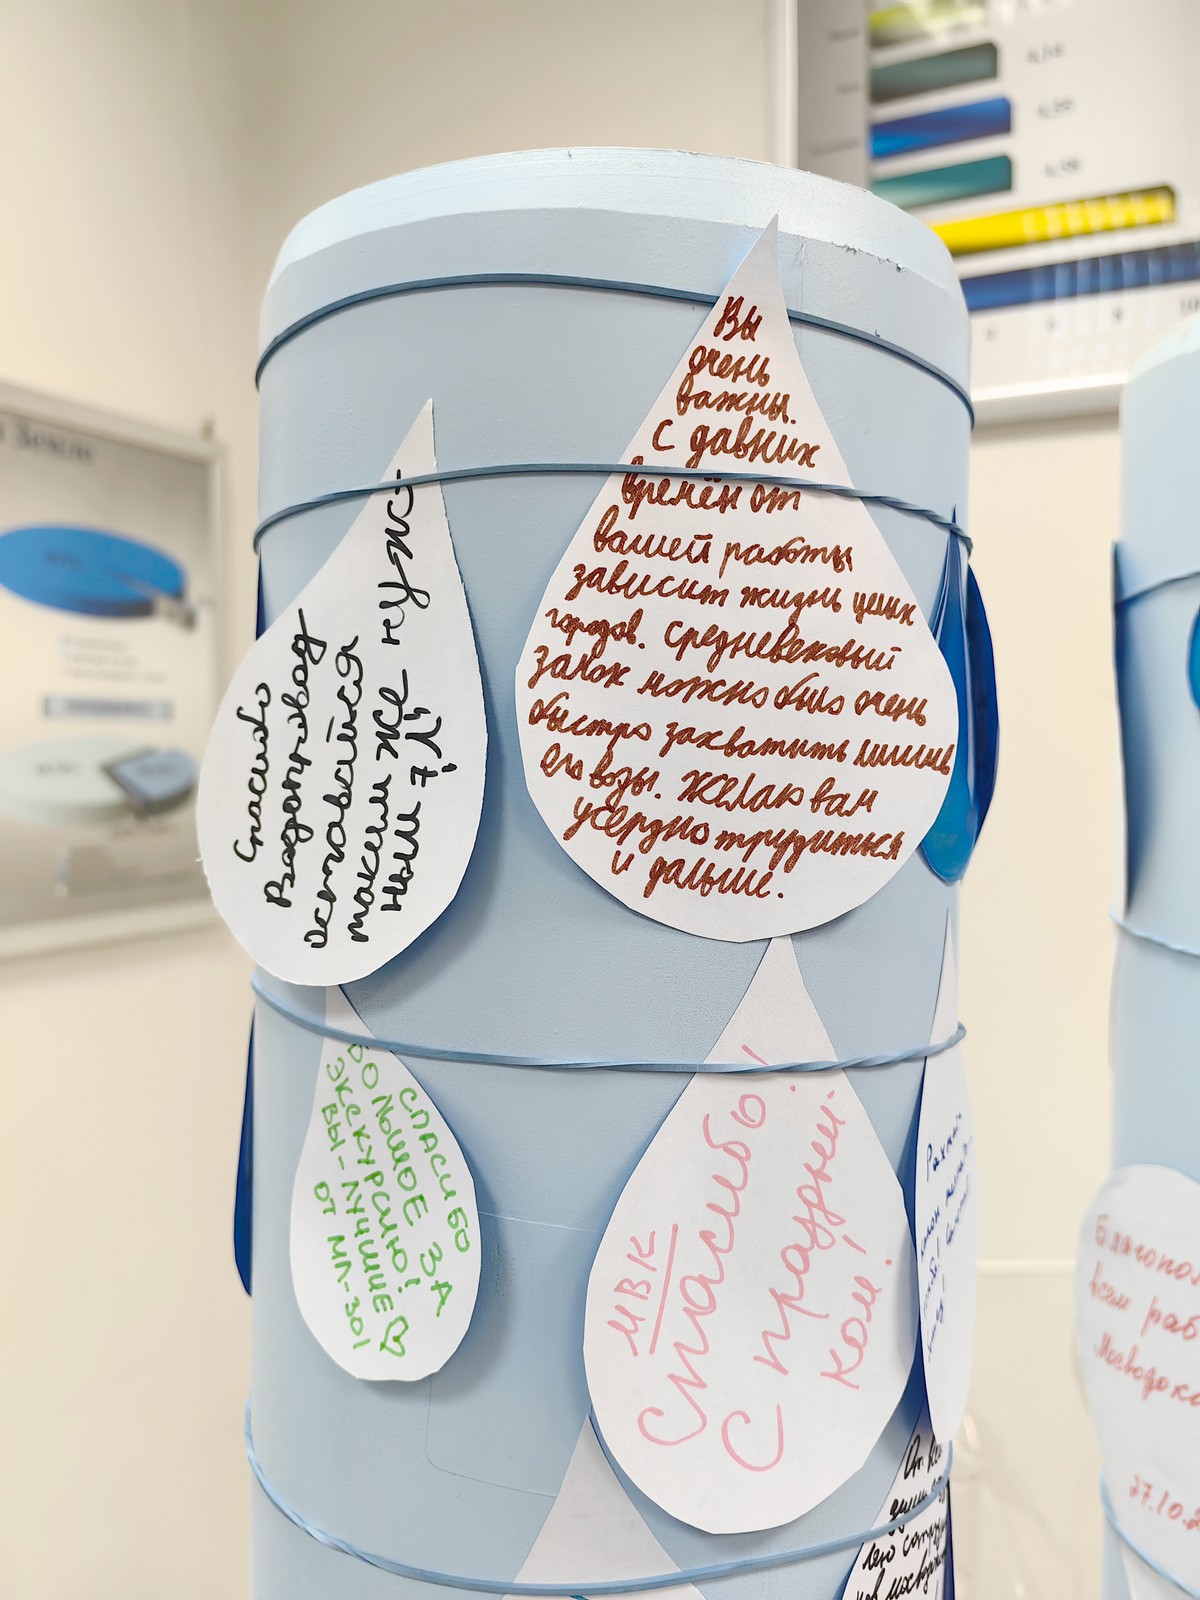 Вы
очень
важны.
С давних
времён от
вашей работы
зависит жизнь целых
городов. Средневековый
замок можно было очень
быстро захватить лишив
его воды. Желаю вам
усердно трудиться
и дальше.
Спасибо
Водопровод
оставайся
таким же нуж-
ным
СПАСИБО
БОЛЬШОЕ ЗА
ЭКСКУРСИЮ!
ВЫ - ЛУЧШИЕ
ОТ МЛ-301
МВК
Спасибо!
С праздни-
ком!
всем
27.10.2
о Земле
4,14
4,56
4,56